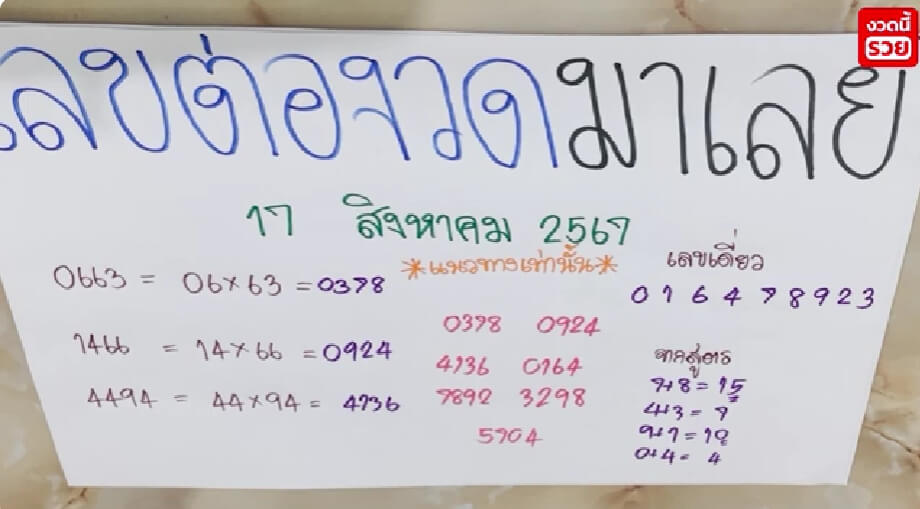 งวดนี้
รวย
เลขต่องวดมาเลย
17 สิงหาคม 2567
*แนวทางเท่านั้น*
0663 = 06×63 = 0378
1466 = 14×66 = 0924
4494 = 44×94 = 4136
0378 0924
4136 0164
7892 3298
5904
เลขเดี่ยว
0 1 6 4 7 8 9 2 3
จากสูตร
7+8=15
4+3=7
9+1=10
0+4=4